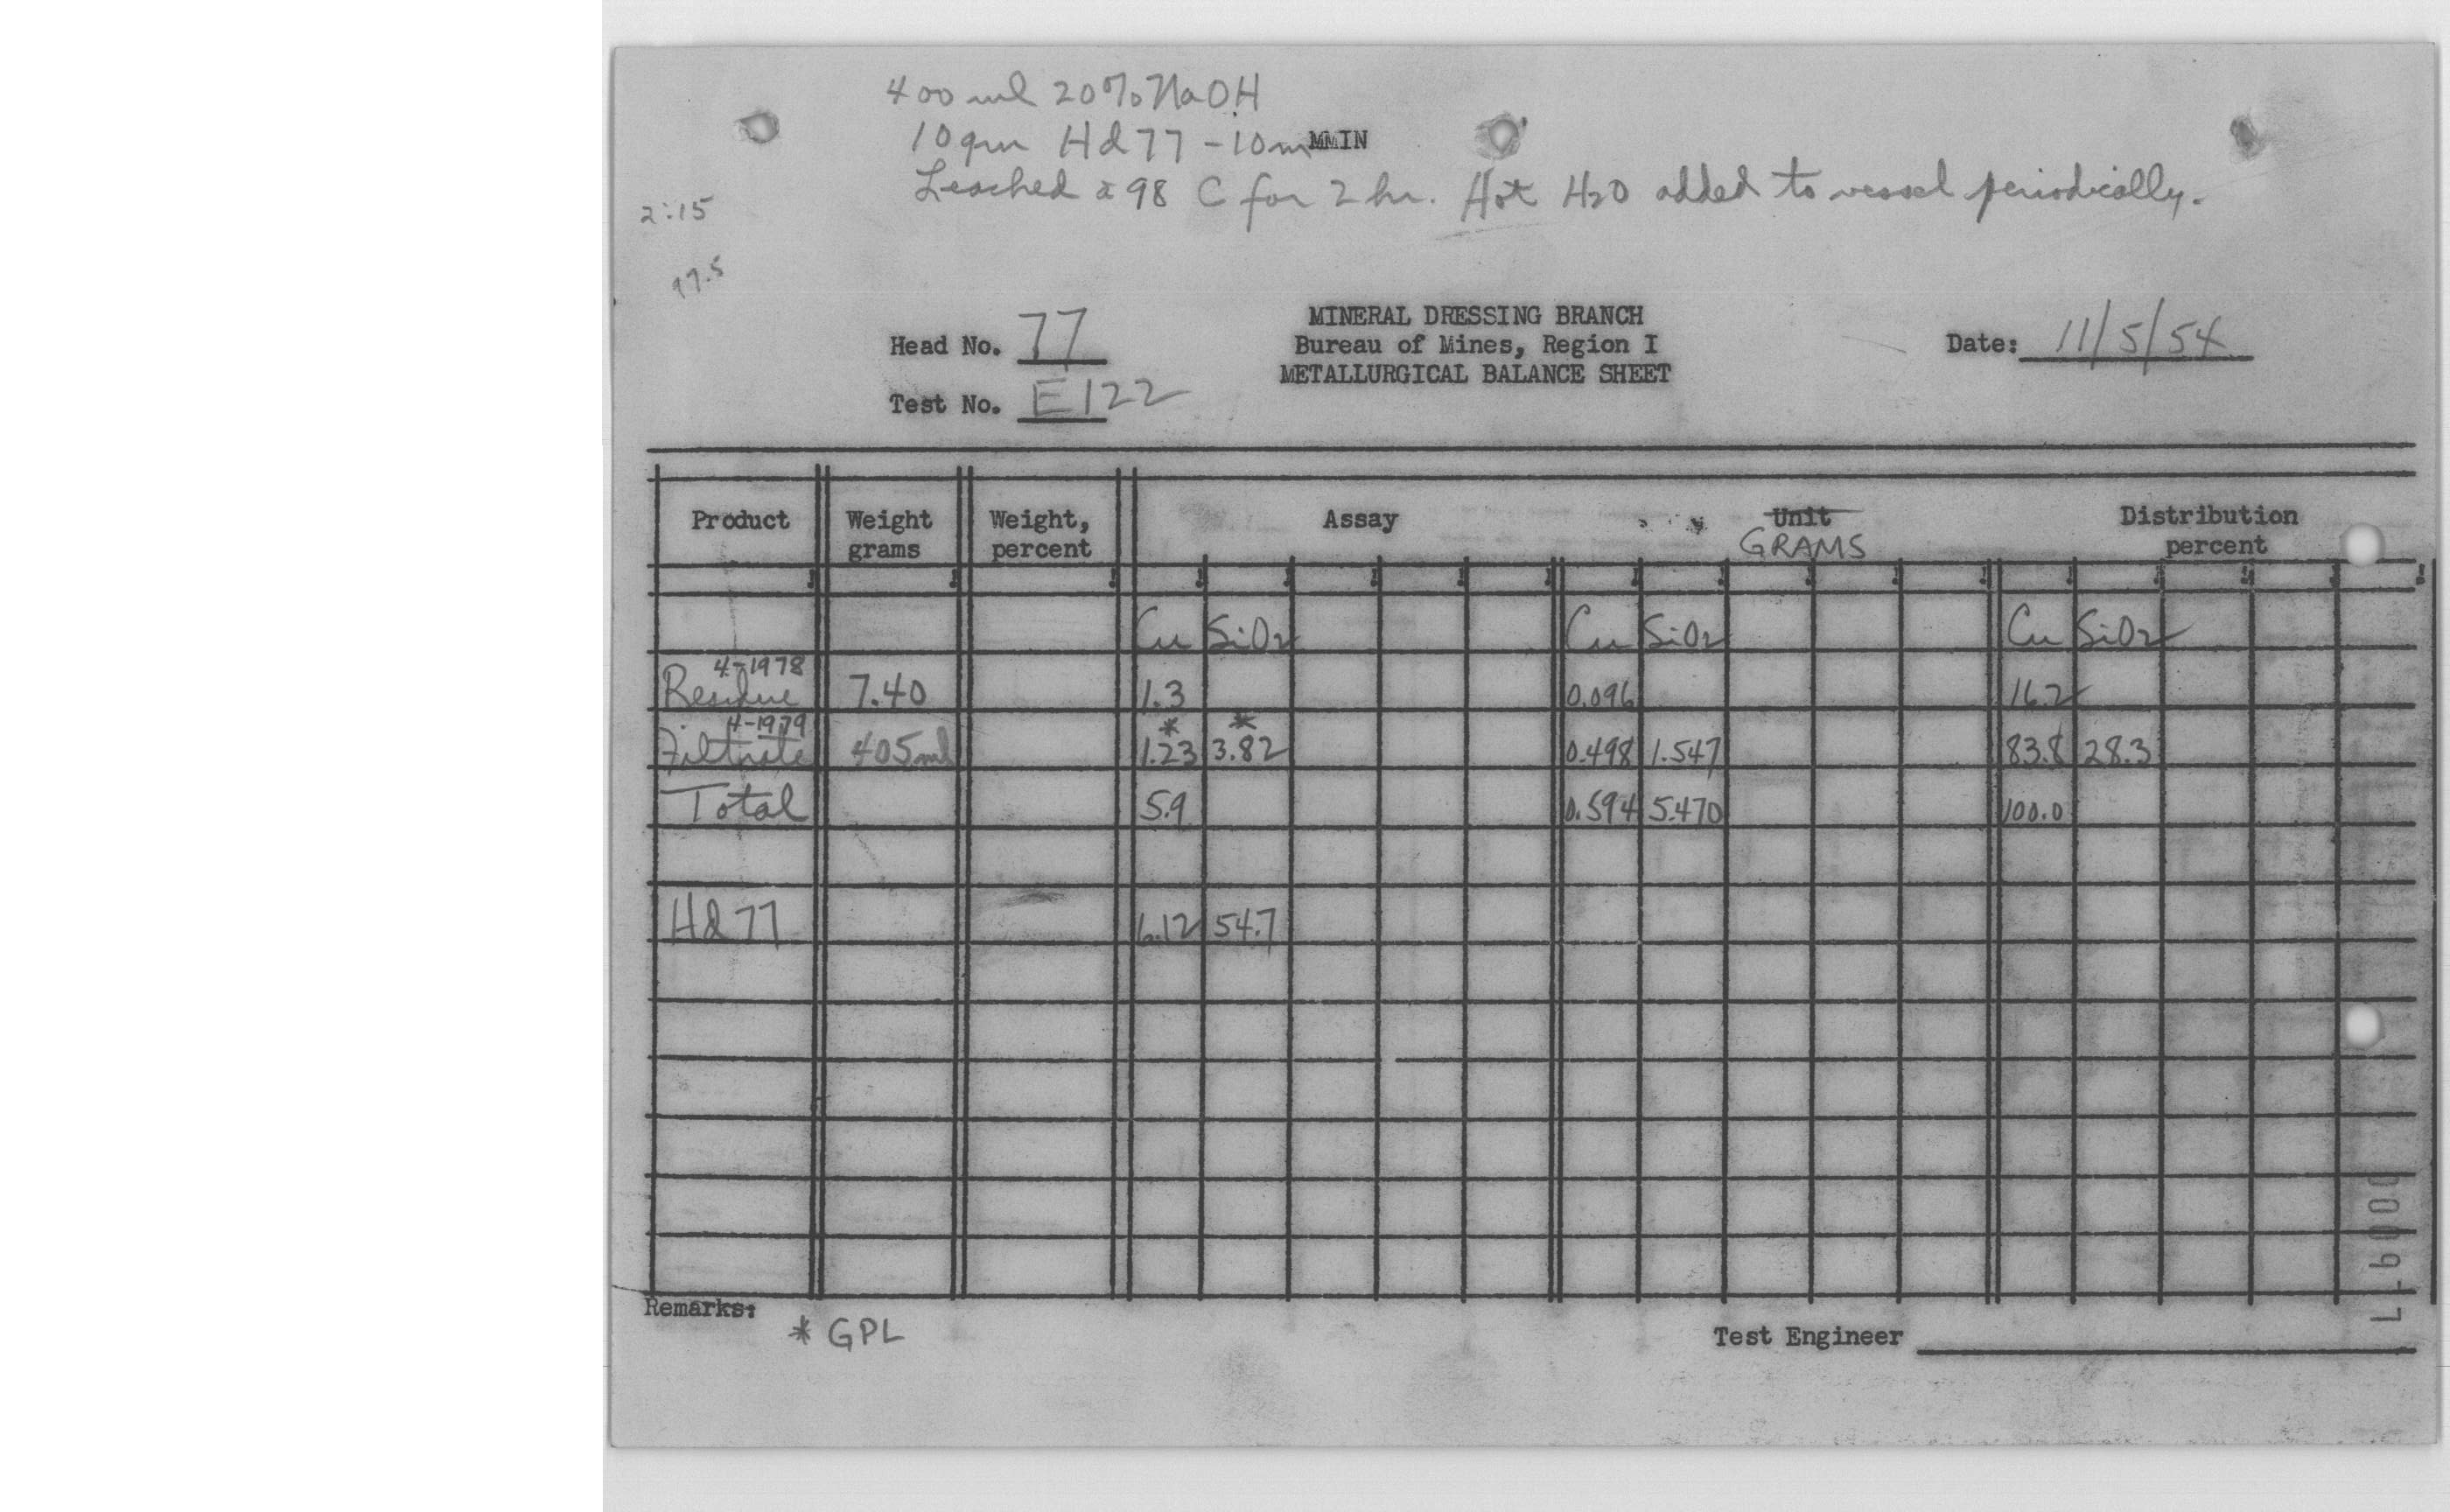 400 ml 20% NaOH
10 gm Hd 77 -10m MMIN
Leached @ 98 C for 2 hr. Hot H2O added to vessel periodically.
2:15
97.5
Head No. 77
Test No. E122
MINERAL DRESSING BRANCH
Bureau of Mines, Region I
METALLURGICAL BALANCE SHEET
Date: 11/5/54
Product Weight grams Weight, percent Assay Unit GRAMS Distribution percent
Cu SiO2 Cu SiO2 Cu SiO2
4-1978
Residue 7.40 1.3 0.096 16.2
4-1979 * *
Filtrate 405 ml 1.23 3.82 0.498 1.547 83.8 28.3
Total 5.9 0.594 5.470 100.0
Hd 77 6.12 54.7
Remarks:
* GPL
Test Engineer